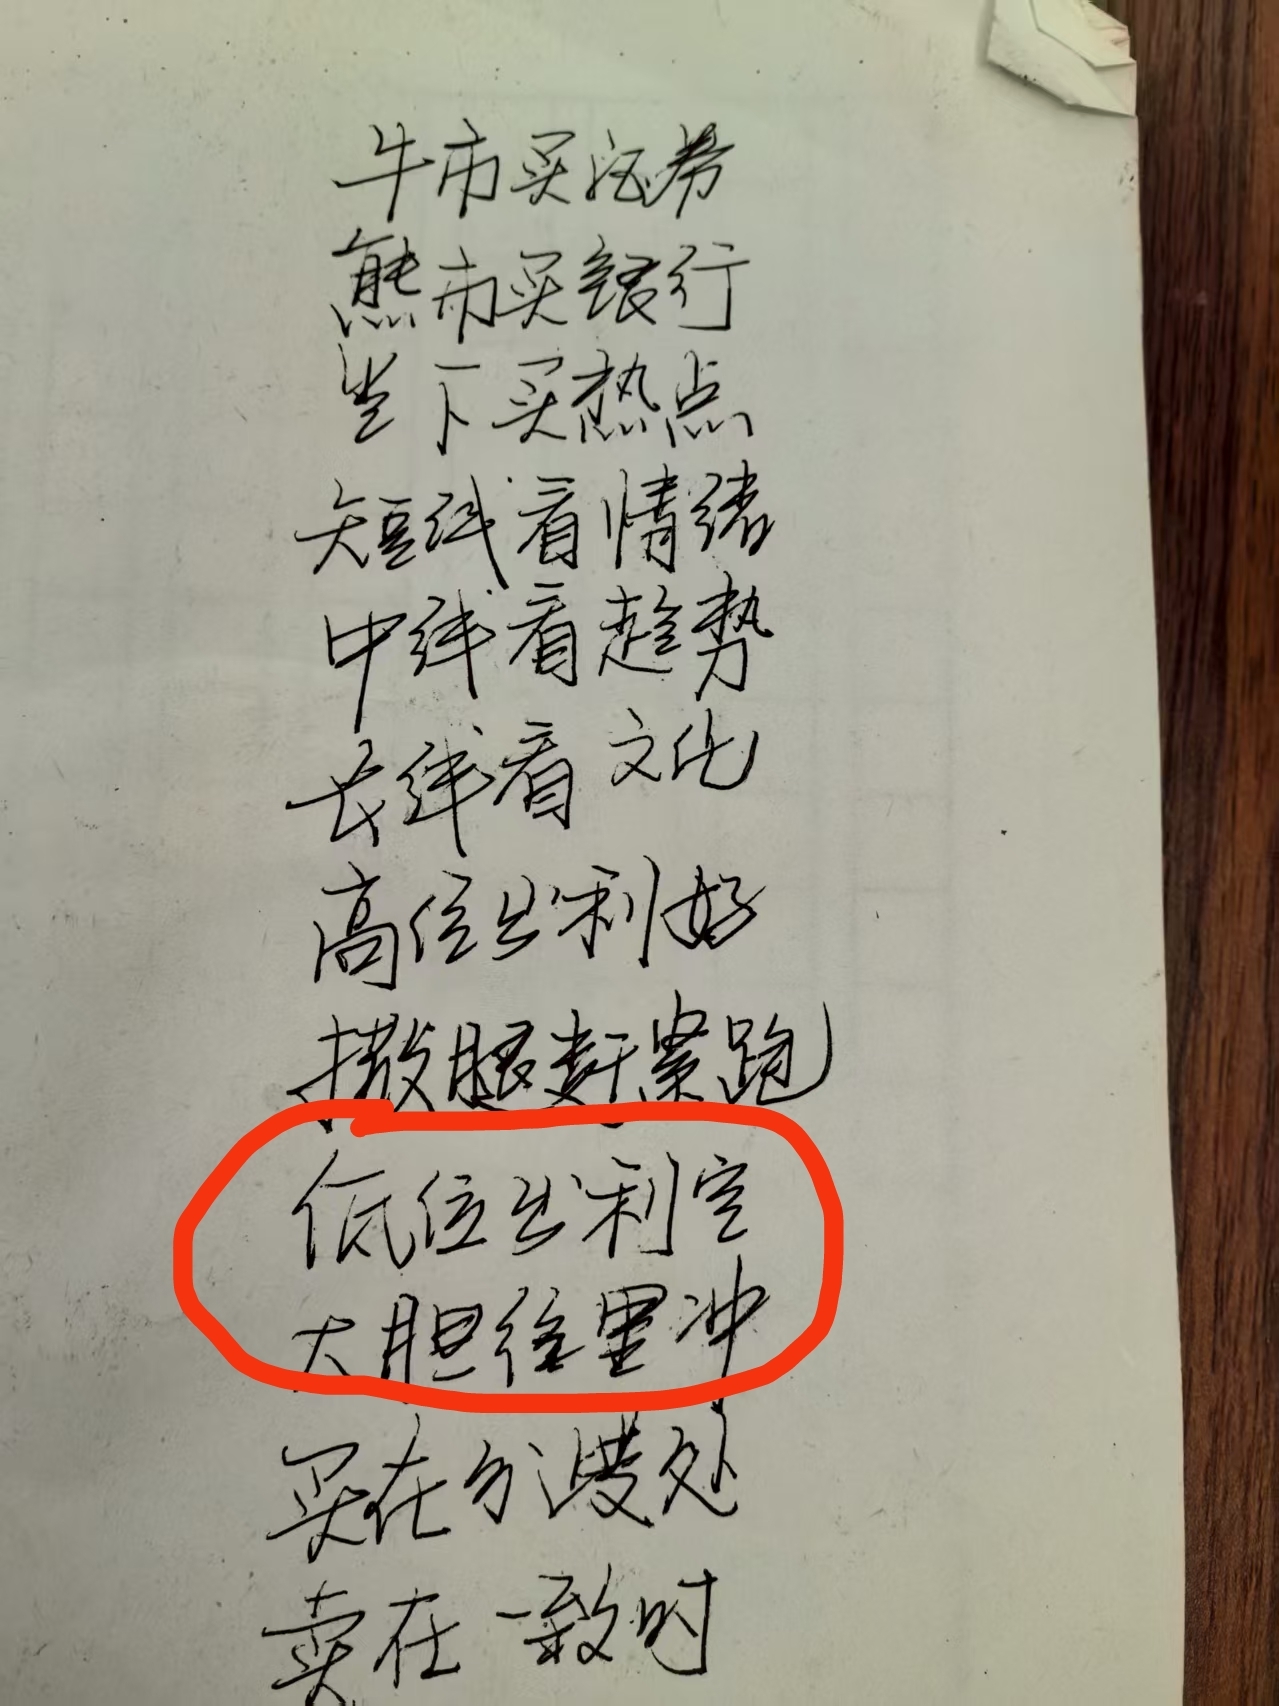 牛市买证券
熊市买银行
当下买热点
短线看情绪
中线看趋势
长线看文化
高位出利好
撒腿赶紧跑
低位出利空
大胆往里冲
买在分歧处
卖在一致时